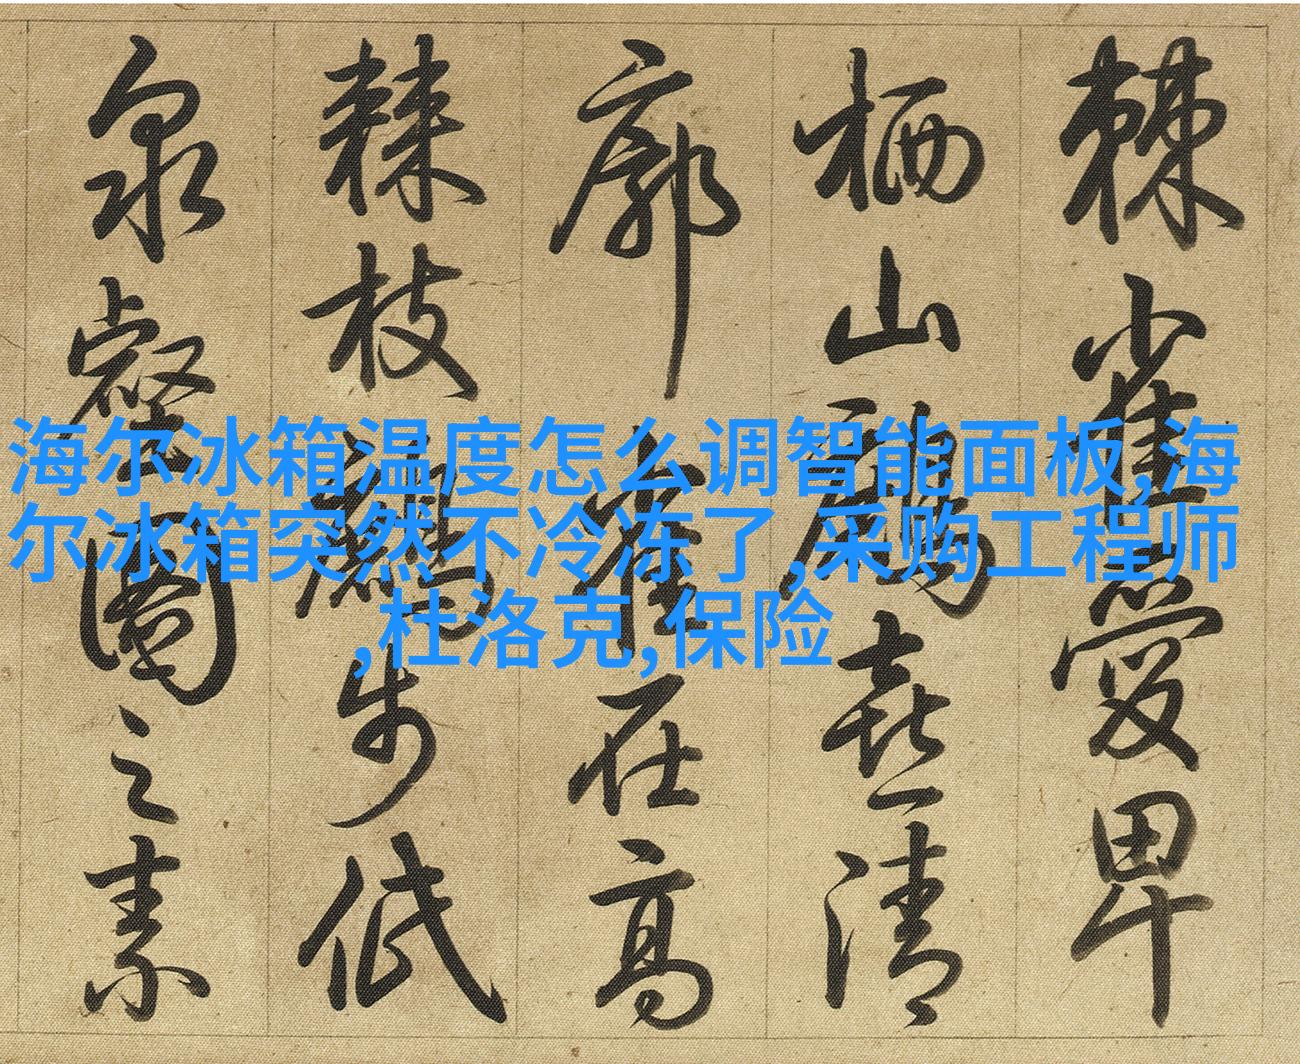 棘雀愛卑
栖山鷓喜清
廓雀在高
棘枝鷓步低
泉壑圖之素
海尔冰箱温度怎么调智能面板,海
尔冰箱突然不冷冻了,采购工程师
,杜洛克,保险